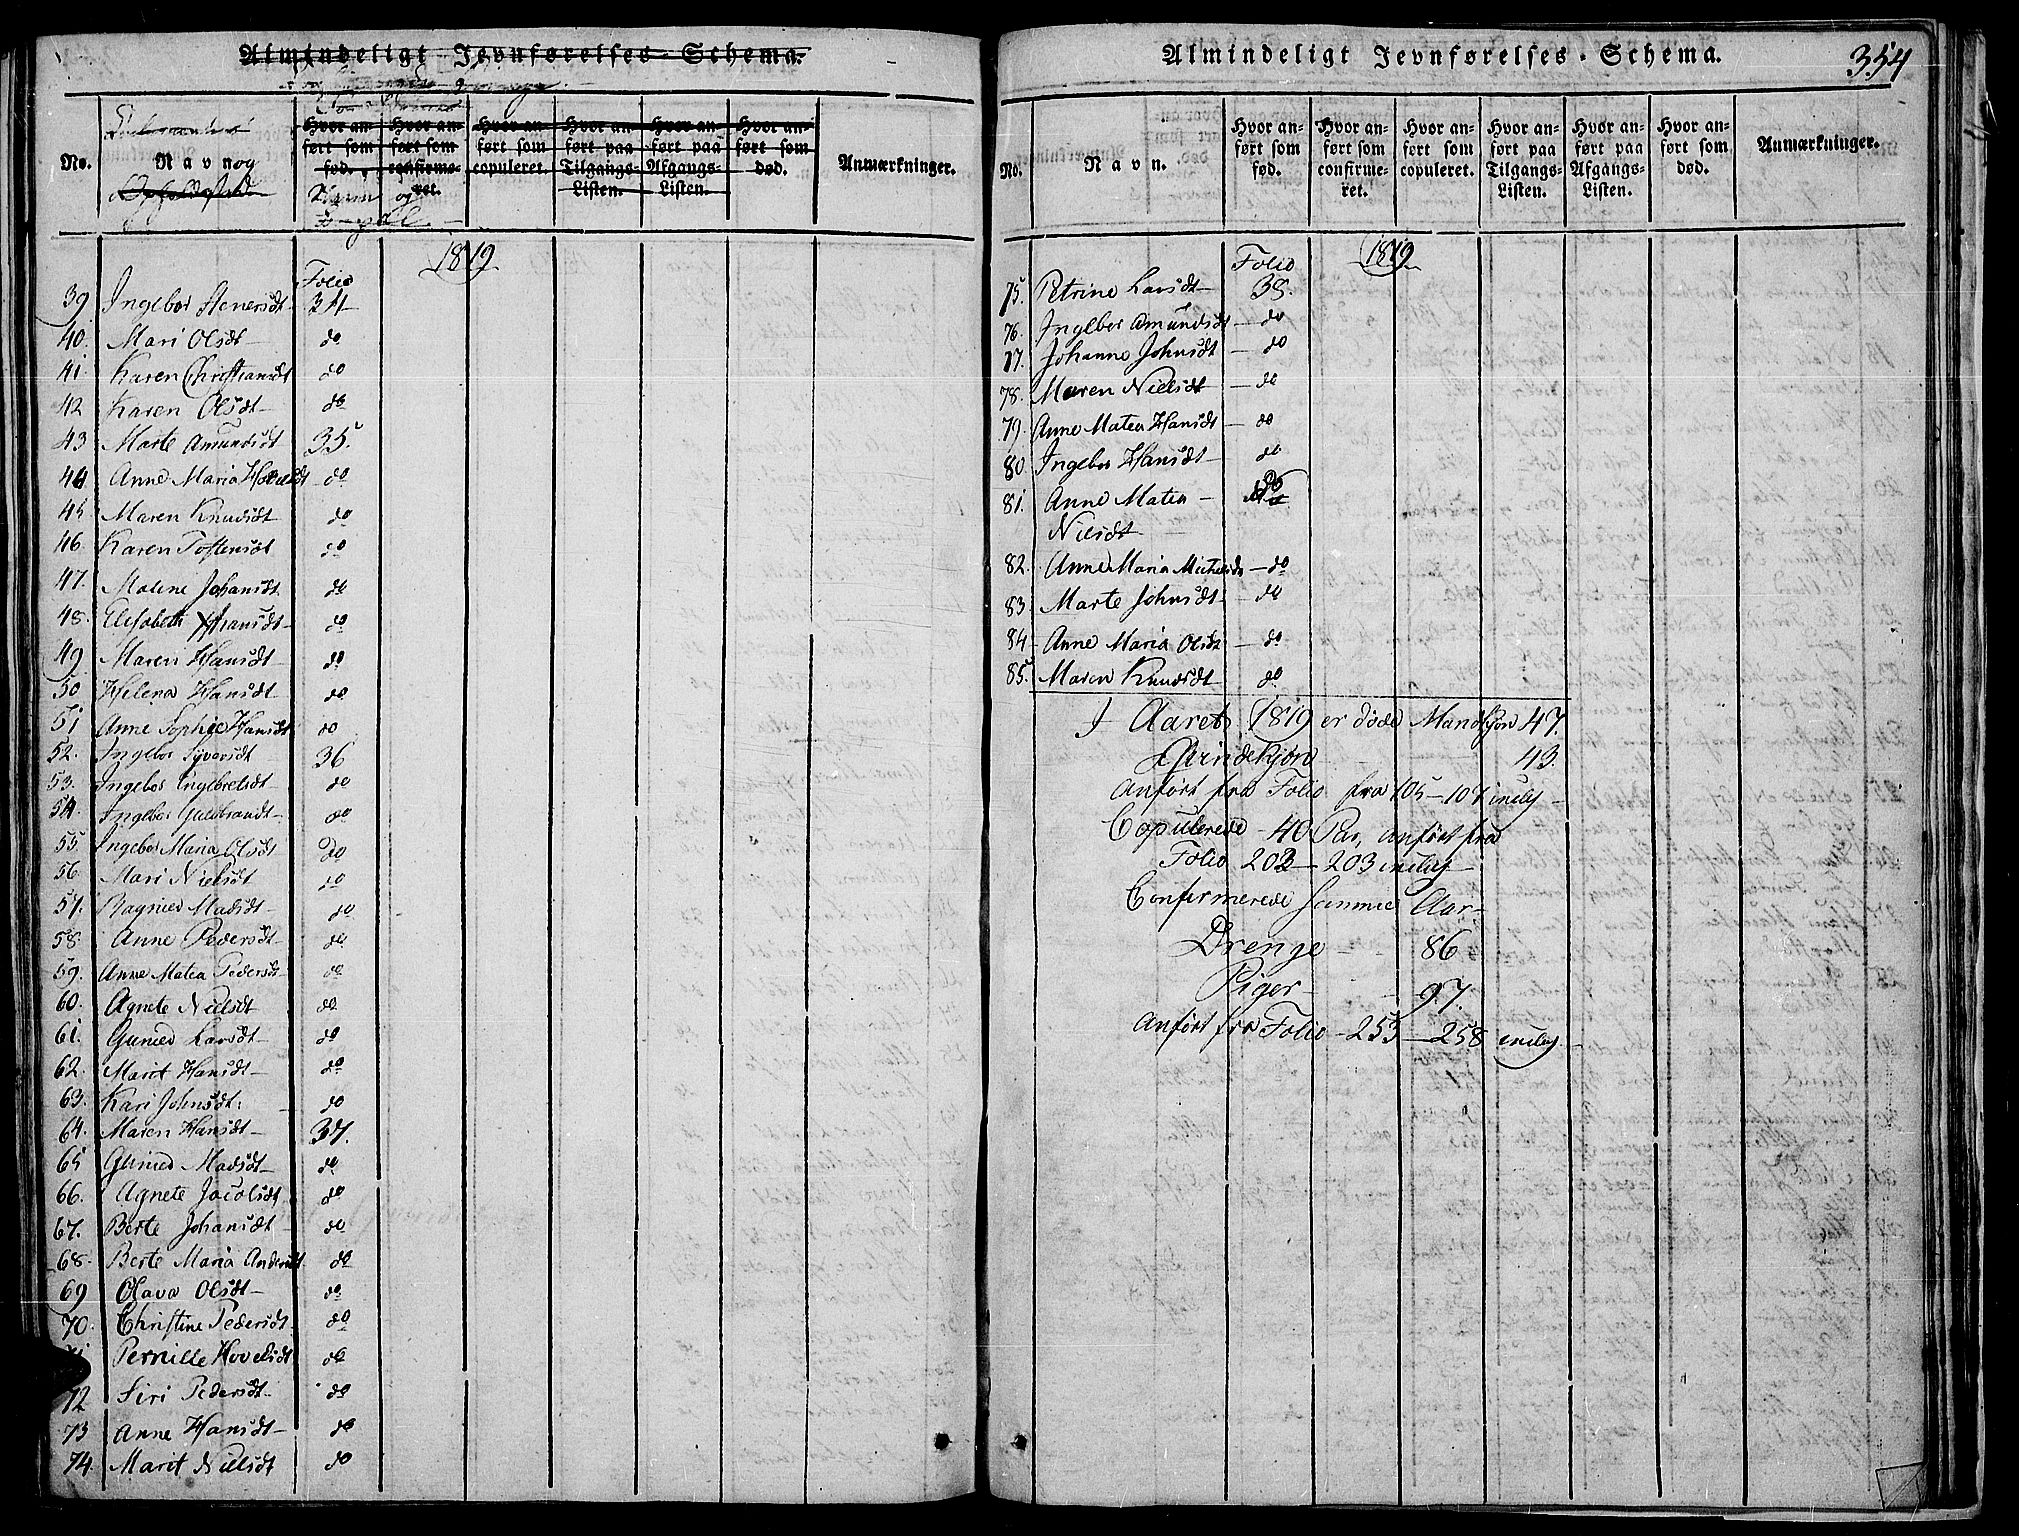 Almindeligt Jevnførelses-Schema.
No.
Navn og
Hvor anført som fød.
Hvor anført som confirmeret.
Hvor anført som copuleret.
Hvor anført paa Tilgangs-Listen.
Hvor anført paa Afgangs-Listen.
Hvor anført som død.
Anmærkninger.
1819
Folio
39. Ingebor Stenersdt 34
40. Mari Olsdt do
41. Karen Christiansdt do
42 Karen Olsdt do
43 Marte Amundsdt 35.
44 Anne Maria Hovelsdt do
45 Maren Knudsdt do
46. Karen Tostensdt do
47. Malene Johansdt do
48. Elisabeth Hansdt do
49 Maren Hansdt do
50 Helena Hansdt do
51 Anne Sophie Hansdt do
52. Ingebor Syversdt 36
53. Ingebor Engebretsdt do
54. Ingebor Guldbrandt do
55. Ingebor Maria Olsdt do
56. Mari Nielsdt do
57. Ragnied Madsdt do
58. Anne Pedersdt do
59. Anne Matea Pedersdt do
60. Agnete Nielsdt do
61. Gunied Larsdt do
62. Marit Hansdt do
63. Kari Johnsdt do
64. Maren Hansdt 37.
65 Gunied Madsdt do
66. Agnete Jacobsdt do
67. Berte Johansdt do
68. Berte Maria Andersdt do
69 Olava Olsdt do
70. Christine Pedersdt do
71 Pernille Hovelsdt do
72 Siri Pedersdt do
73 Anne Hansdt do
74. Marit Nielsdt do
Almindeligt Jevnførelses-Schema.
354
No.
Navn.
Hvor anført som fød.
Hvor anført som confirmeret.
Hvor anført som copuleret.
Hvor anført paa Tilgangs-Listen.
Hvor anført paa Afgangs-Listen.
Hvor anført som død.
Anmærkninger.
Folio 1819
75. Petrine Larsdt 38.
76. Ingebor Amundsdt do
77. Johanne Johnsdt do
78. Maren Nielsdt do
79. Anne Matea Hansdt do
80. Ingebor Hansdt do
81. Anne Matea do
Nielsdt
82. Anne Maria Michelsdt do
83. Marte Johnsdt do
84 Anne Maria Olsdt do
85. Maren Knudsdt do
I Aaret 1819 er døde Mandkjøn 47.
Qvindekjøn 43.
Anført fra Folio fra 105-107 incl.
Copulerede 40 Par, anført fra
Folio 202-203 incl.
Confirmerede samme Aar
Drenge 86
Piger 97.
Anført fra Folio 253-258 incl.